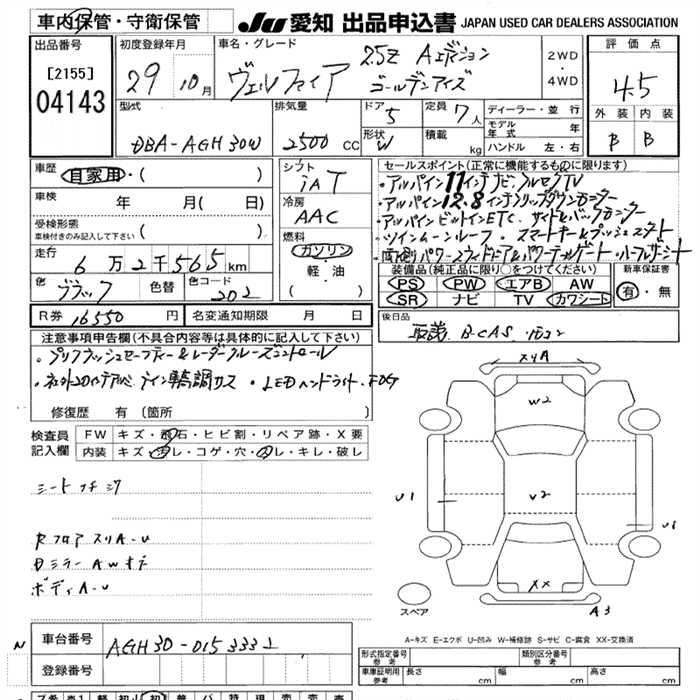 車内保管・守衛保管
JU 愛知 出品申込書 JAPAN USED CAR DEALERS ASSOCIATION
出品番号
[2155]
04143
初度登録年月
29 10月
車名・グレード
2.5Z Aエディション
ヴェルファイア ゴールデンアイズ
2WD
・
4WD
評価点
4.5
外装 内装
B B
型式
DBA-AGH30W
排気量
2500 cc
ドア 5
形状 W
定員 7人
積載 kg
ディーラー・並行
モデル年式 年
ハンドル 左・右
車歴 自家用・( )
車検 年 月( 日)
受検形態
車検付きのみ記入して下さい ( )
走行 6万2千565km
色 ブラック 色替 色コード 202
R券 16550 円 名変通知期限 月 日
シフト
iAT
冷房
AAC
燃料
ガソリン
・
軽・油
( )
セールスポイント(正常に機能するものに限ります)
・アルパイン11インチナビ、フルセグTV
・アルパイン12.8インチフリップダウンモニター
・アルパインビルトインETC・サイド&バックモニター
・ツインムーンルーフ・スマートキー&プッシュスタート
・両側パワースライドドア&パワーゲート・ハーフレザーシート
装備品(純正品に限り○をつけてください)
PS PW エアB AW
SR ナビ TV カワシート
新車保証書
有・無
後日品
取説 B-CAS リモコン
注意事項申告欄(不具合内容等は具体的に記入して下さい)
・プリクラッシュセーフティー&レーダークルーズコントロール
・LEDヘッドライト・FOG
修復歴 有(箇所 )
検査員
記入欄
FW キズ・飛石・ヒビ割・リペア跡・X要
内装 キズ・汚レ・コゲ・穴・スレ・キレ・破レ
フロアスリA-U
ドミラーAWキズ
ボディA-U
スリA
W2
U1
U2
U1
XX
A3
スペア
A-キズ E-エクボ U-凹み W-補修跡 S-サビ C-腐食 XX-交換済
N
車台番号 AGH30-0153332
登録番号
形式指定番号
参考
類別区分番号
参考
車庫証明用
参考
長さ cm 幅 cm 高さ cm